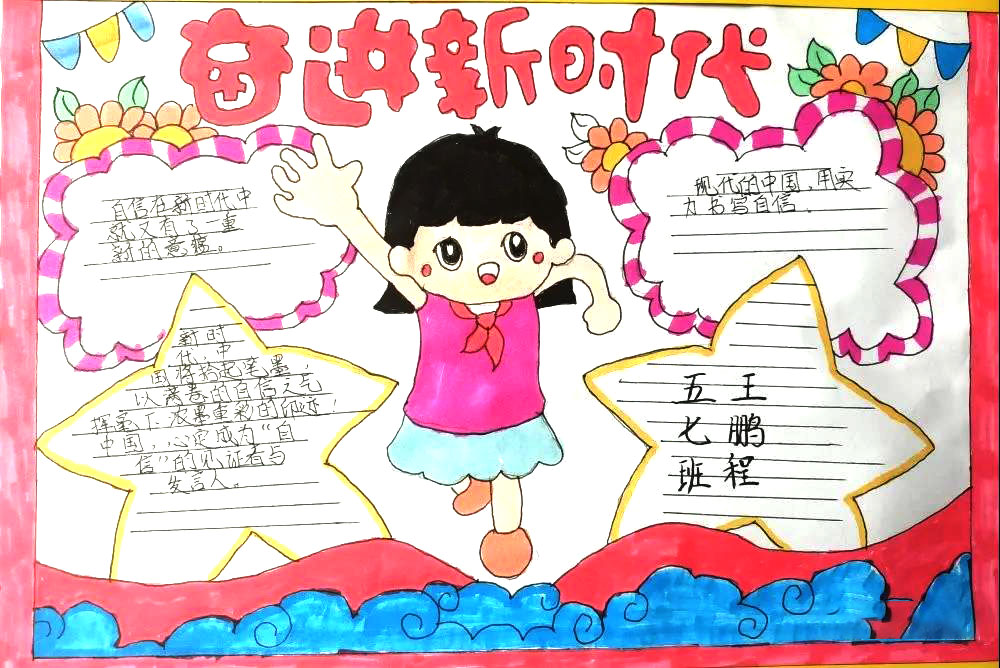 奋进新时代
自信在新时代中
就又有了一重
新的意蕴。
现代的中国,用实
力书写自信。
新时
代,中
国将拾起笔墨,
以青春的自信之气
挥毫下浓墨重彩的
中国,必定成为“自
信”的见证者与
发言人。
五 王
七 鹏
班 程